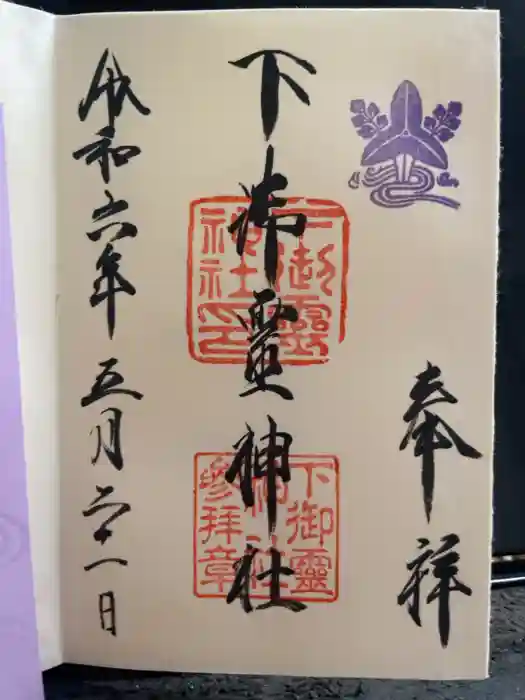 奉祥
下御霊神社
下御靈神社印
下御靈神社參拜章
令和六年五月二十一日